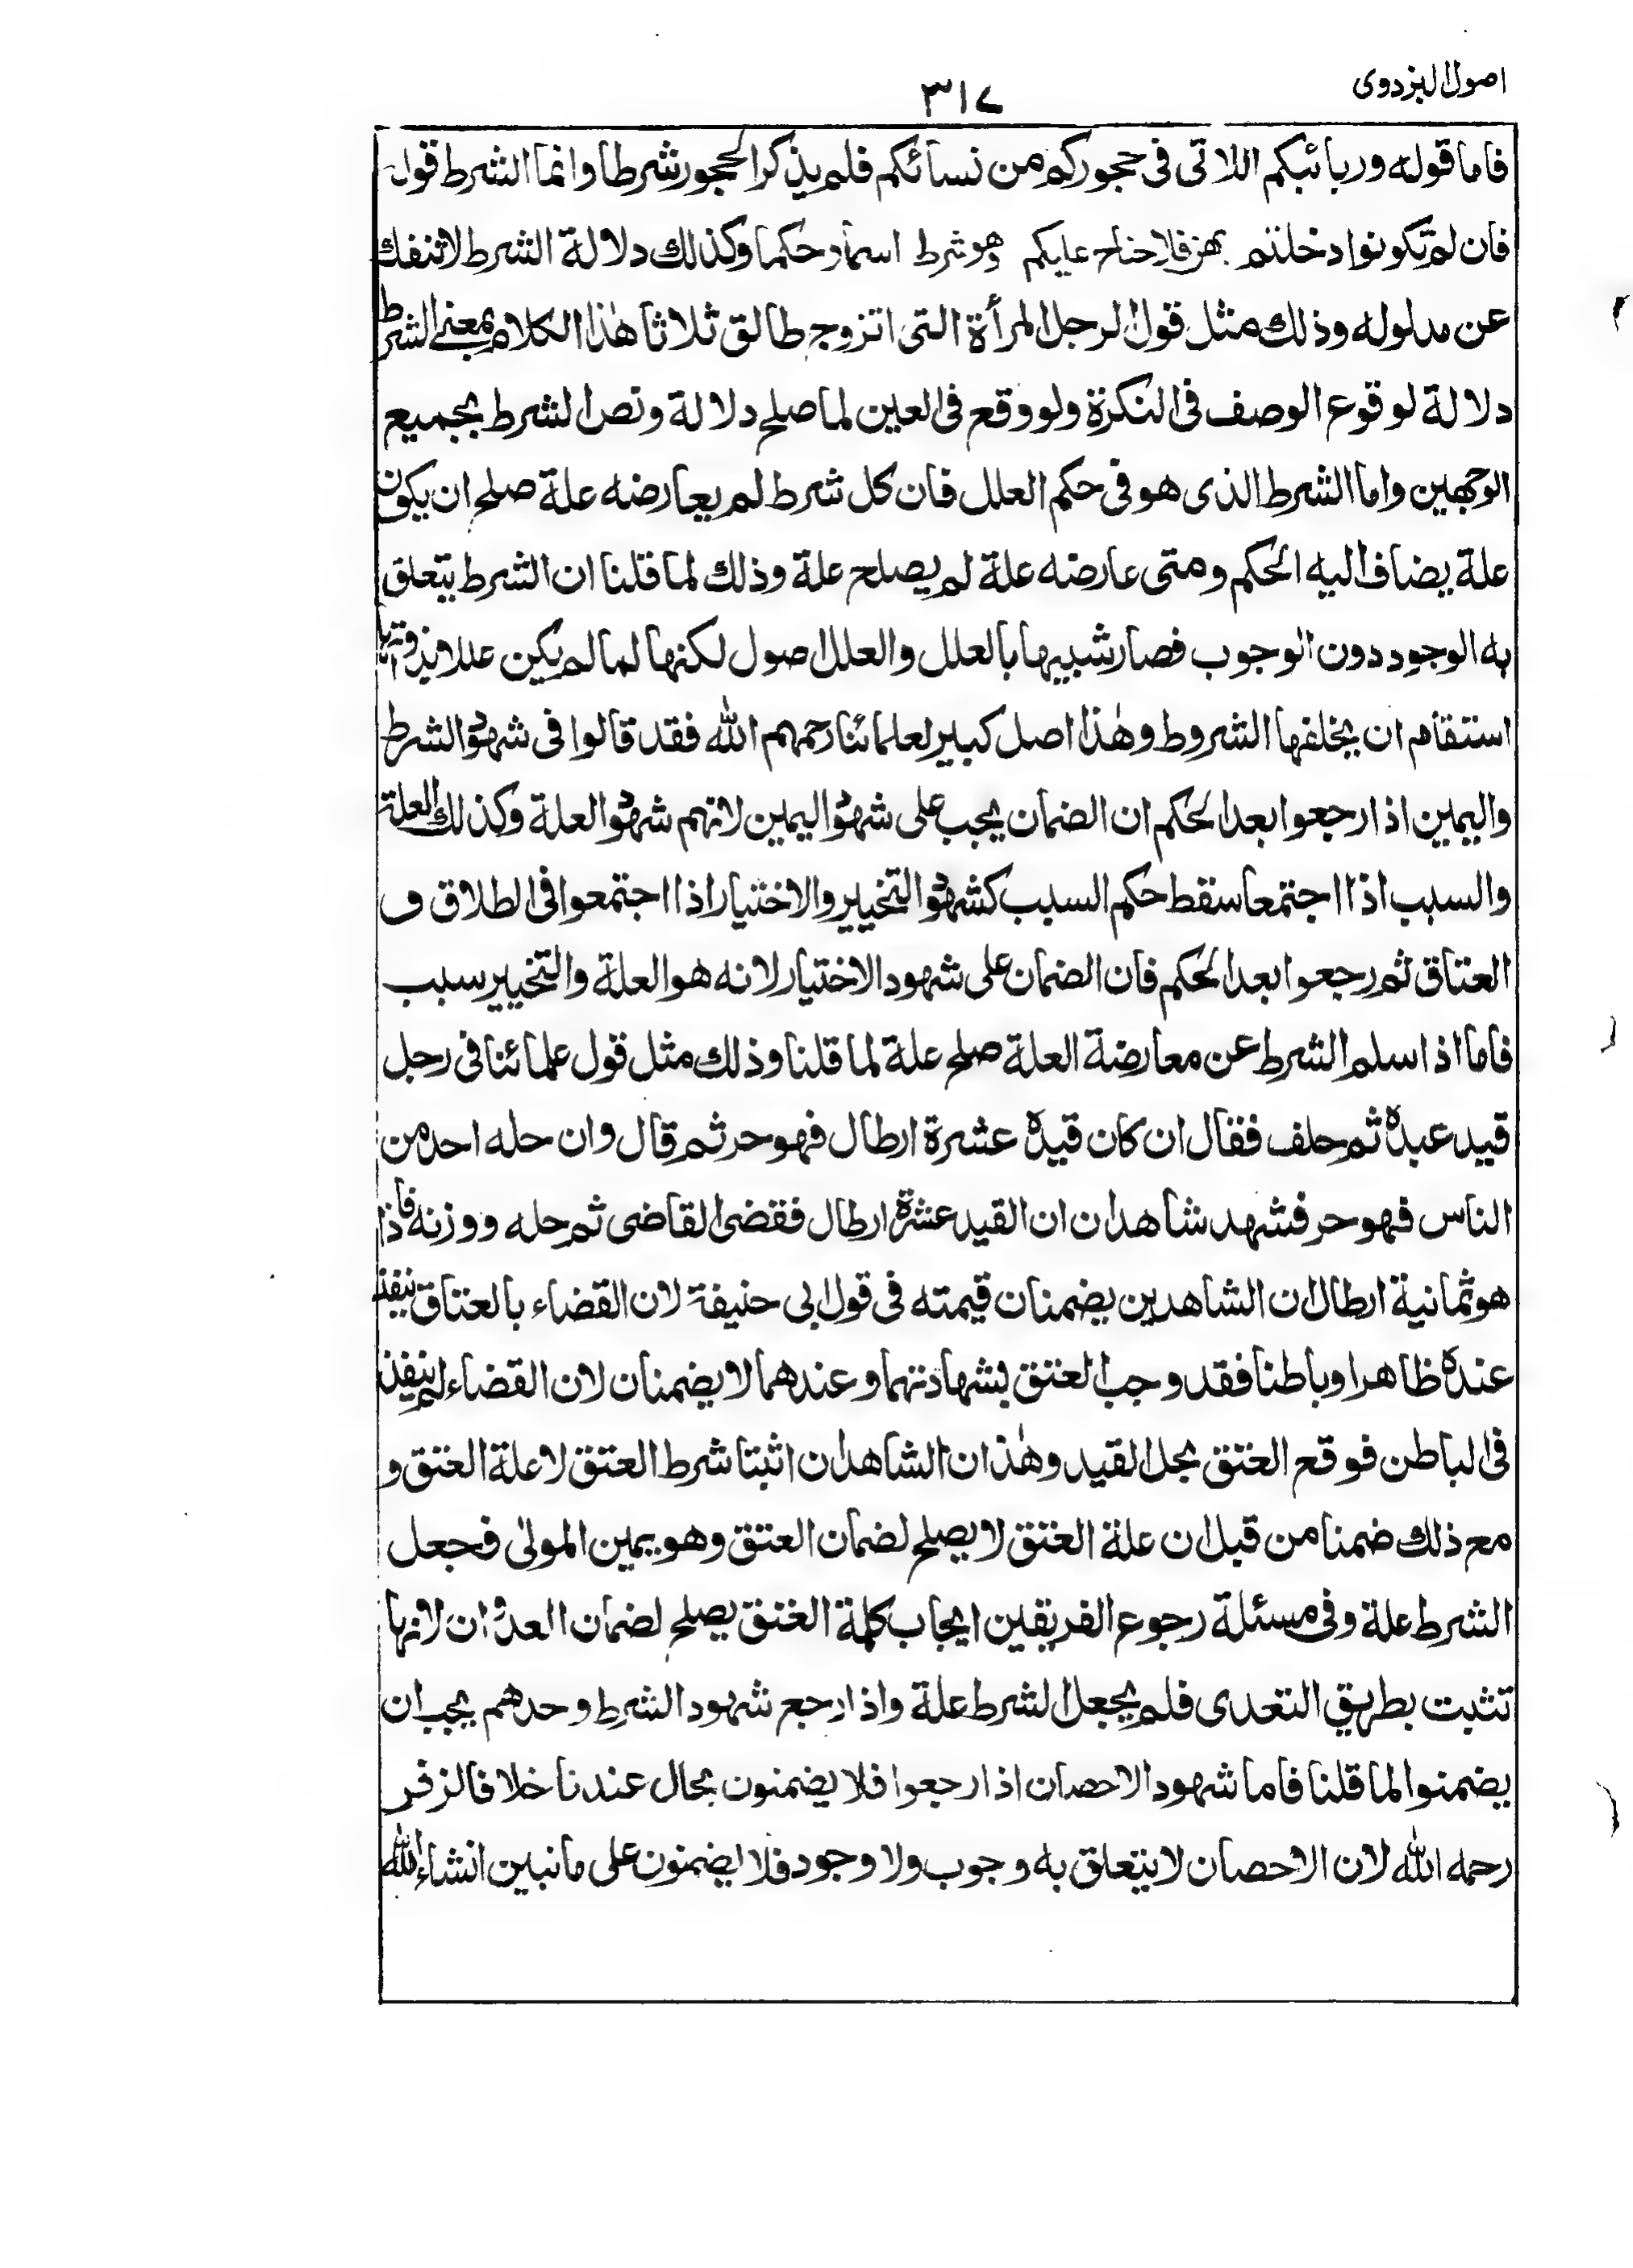 اصول البزدوى
٣١٧
فاما قوله وربائبكم اللاتى فى حجوركم من نسائكم فلم يذكر الحجور شرطا وانما الشرط قوله
فان لم تكونوا دخلتم بهن فلا جناح عليكم وهو شرط اسما وحكما وكذلك دلالة الشرط لاتنفك
عن مدلوله وذلك مثل قول الرجل المرأة التى اتزوج طالق ثلاثا هٰذا الكلام بمعنى الشرط
دلالة لوقوع الوصف فى النكرة ولو وقع فى العين لما صلح دلالة ونص الشرط يجميع
الوجهين واما الشرط الذى هو فى حكم العلل فان كل شرط لم يعارضه علة صلح ان يكون
علة يضاف اليه الحكم ومتى عارضه علة لم يصلح علة وذلك لما قلنا ان الشرط يتعلق
به الوجود دون الوجوب فصار شبيها بالعلل والعلل اصول لكنها لما لم يكن عللا بذواتها
استقام ان يخلفها الشروط وهٰذا اصل كبير لعلمائنا رحمهم الله فقد قالوا فى شهود الشرط
واليمين اذا رجعوا بعد الحكم ان الضمان يجب على شهود اليمين لانهم شهود العلة وكذلك العلة
والسبب اذا اجتمعا سقط حكم السبب كشهود التخيير والاختيار اذا اجتمعوا فى الطلاق و
العتاق ثم رجعوا بعد الحكم فان الضمان على شهود الاختيار لانه هو العلة والتخيير سبب
فاما اذا سلم الشرط عن معارضة العلة صلح علة لما قلنا وذلك مثل قول علمائنا فى رجل
قيد عبده ثم حلف فقال ان كان قيده عشرة ارطال فهو حر ثم قال وان حله احد من
الناس فهو حر فشهد شاهدان ان القيد عشرة ارطال فقضى القاضى ثم حله ووزنه فاذا
هو ثمانية ارطال ان الشاهدين يضمنان قيمته فى قول ابى حنيفة لان القضاء بالعتاق ينفذ
عنده ظاهرا وباطنا فقد وجب العتق بشهادتهما وعندهما لا يضمنان لان القضاء لم ينفذ
فى الباطن فوقع العتق بحل القيد وهٰذان الشاهدان اثبتا شرط العتق لا علة العتق و
مع ذلك ضمنا من قبل ان علة العتق لا يصلح لضمان العتق وهو يمين المولىٰ فجعل
الشرط علة وفى مسئلة رجوع الفريقين ايجاب كلمة العتق يصلح لضمان العدوان لانها
تثبت بطريق التعدى فلم يجعل الشرط علة واذا رجع شهود الشرط وحدهم يجب ان
يضمنوا لما قلنا فاما شهود الاحصان اذا رجعوا فلا يضمنون بحال عندنا خلافا لزفر
رحمه الله لان الاحصان لا يتعلق به وجوب ولا وجود فلا يضمنون على ما نبين انشاء الله